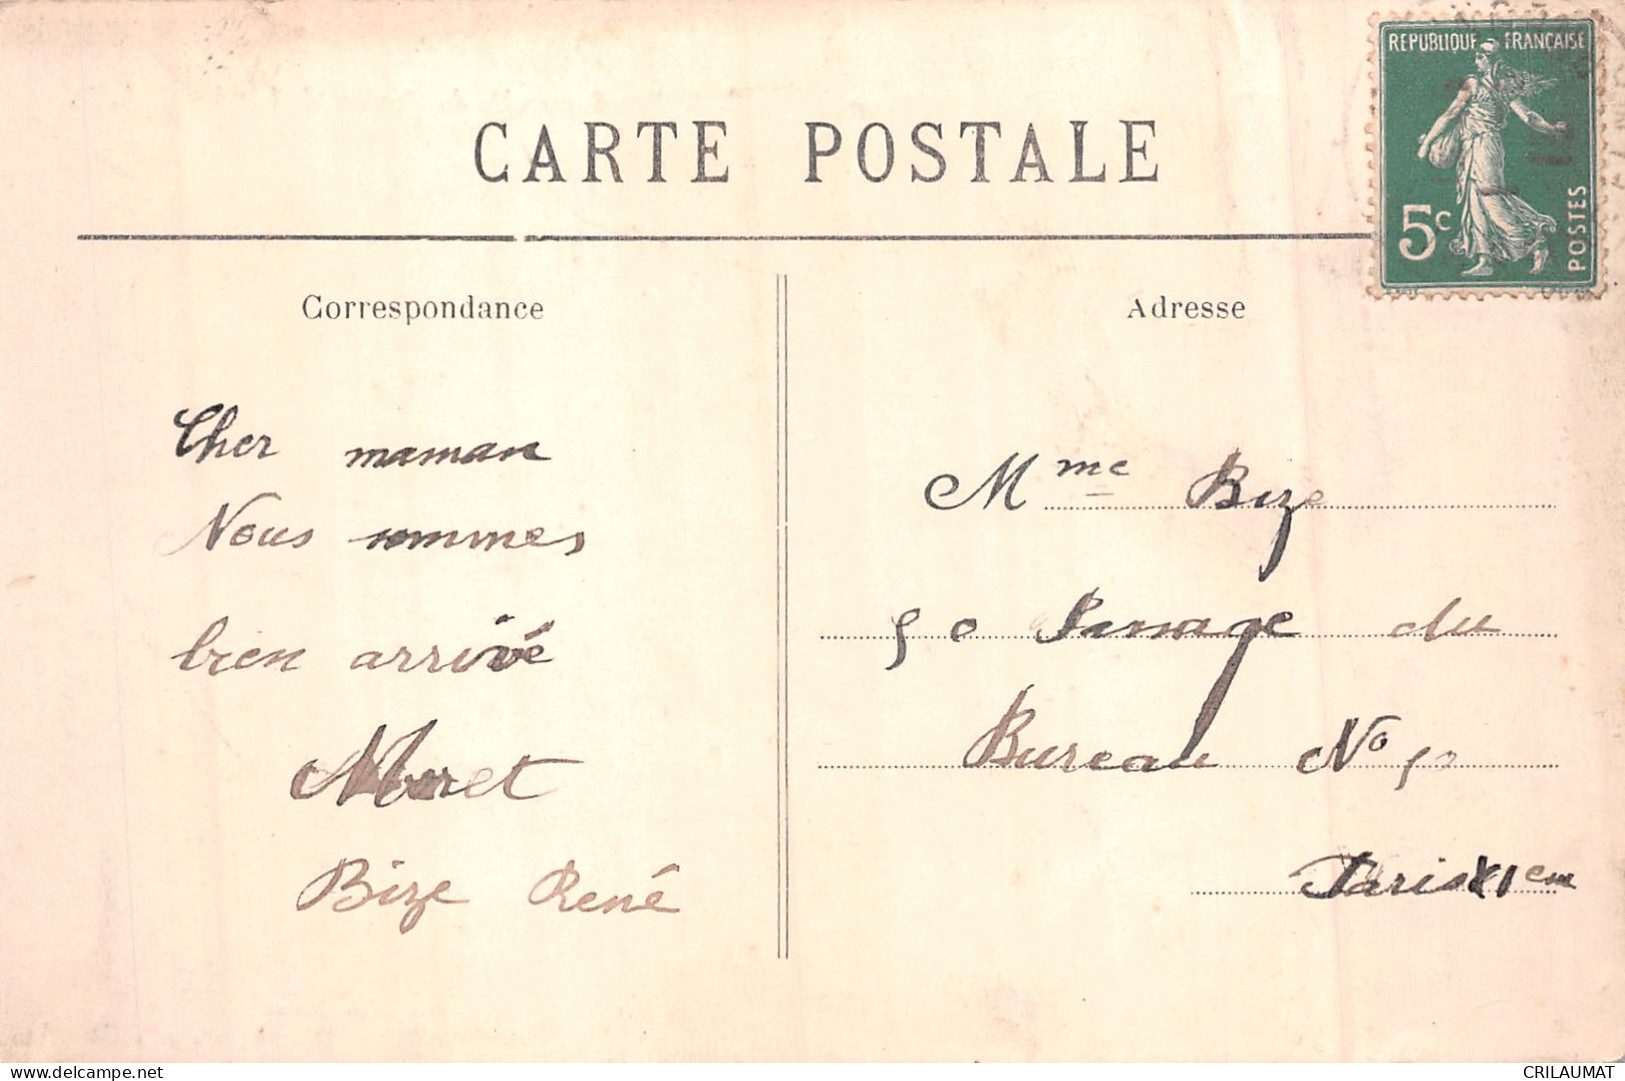 CARTE POSTALE
REPUBLIQUE FRANÇAISE
5c
POSTES
Correspondance
Cher maman
Nous sommes
bien arrivé
Bize René
Adresse
Mme Bize
50 Passage du
Bureau No 50
Paris XIeme
www.delcampe.net
CRILAUMAT